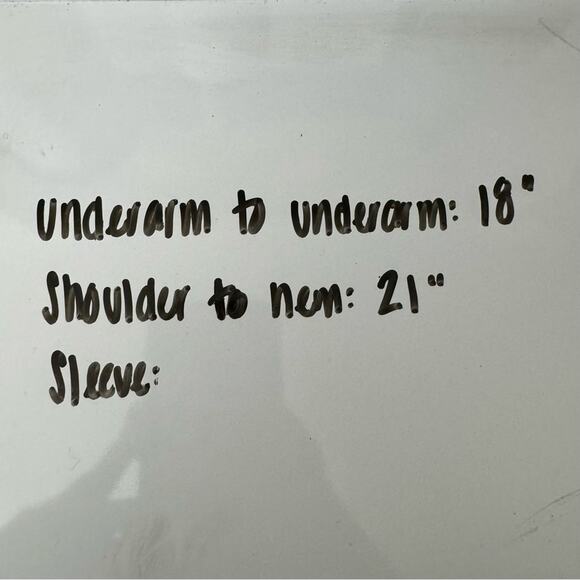 underarm to underarm: 18"
Shoulder to hem: 21"
Sleeve: